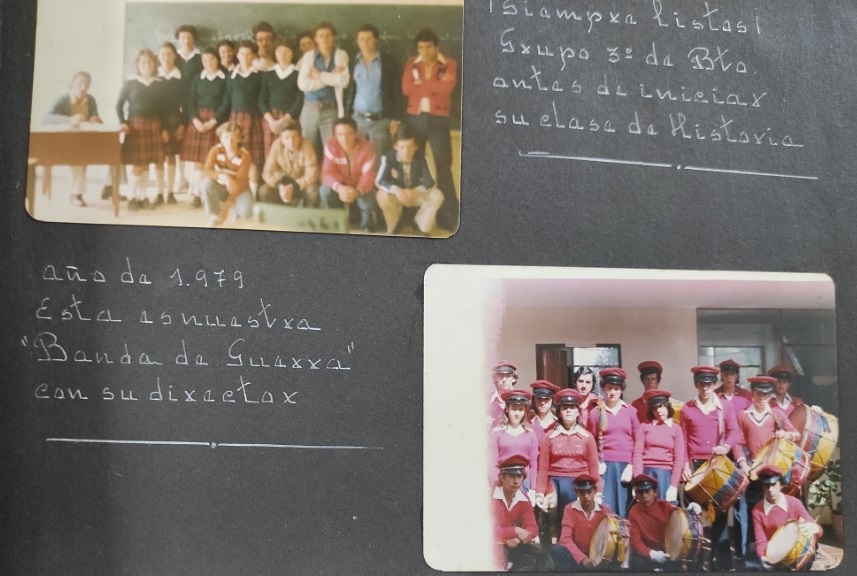 ¡Siempre listos!
Grupo 3º de Bto.
antes de iniciar
su clase de Historia
año de 1.979
Esta es nuestra
"Banda de Guerra"
con su director